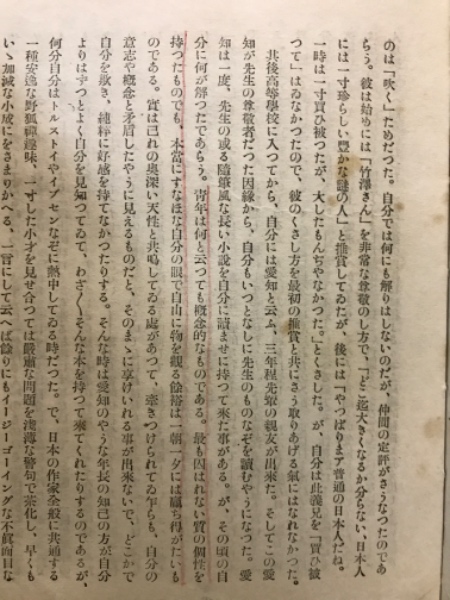 のは「吹く」ためだつた。自分では何にも解りはしないのだが、仲間の定評がさうなつたのであ
らう。彼は始めには「竹澤さん」を非常な尊敬のし方で、「どこ迄大きくなるか分らない、日本人
には一寸珍らしい豊かな謎の人」と推賞してゐたが、後には「やつぱりまア普通の日本人だね。
一時は一寸買ひ被つたが、大したもんぢやなかつた。」とくさした。が、自分は此義兄を「買ひ被
つて」はゐなかつたので、彼のくさし方を最初の推賞と共にさう取りあげる氣にはなれなかつた。
其後高等學校に入つてから、自分には愛知と云ふ、三年程先輩の親友が出來た。そしてこの愛
知が先生の尊敬者だつた因緣から、自分もいつとなしに先生のものなぞを讀むやうになつた。愛
知は一度、先生の或る隨筆風な長い小説を自分に讀ませに持つて來た事がある。が、その頃の自
分に何が解つたであらう。靑年は何と云つても概念的なものである。最も囚はれない質の個性を
持つたものでも、本當にすなほな自分の眼で自由に物を觀る餘裕は一朝一夕には贏ち得がたいも
のである。實は己れの奥深い天性と共鳴してゐる處があつて、牽きつけられてゐ乍らも、自分の
意志や概念と矛盾したやうに見えるものだと、そのまゝに享けいれる事が出來ないで、どこかで
自分を欺き、純粹に好感を持てなかつたりする。そんな時は愛知のやうな年長の知己の方が自分
よりはずつとよく自分を見知つてゐて、わざ〱そんな本を持つて來てくれたりするのであるが、
何分自分はトルストイやイプセンなぞに熱中してゐる時だつた。で、日本の作家全般に共通する
一種安逸な野狐禪趣味、一寸した小才を見せ合つては嚴肅な問題を淺薄な警句で茶化し、早くも
いゝ加減な小成にをさまりかへる、一言にして云へば餘りにもイージーゴーイングな不眞面目な